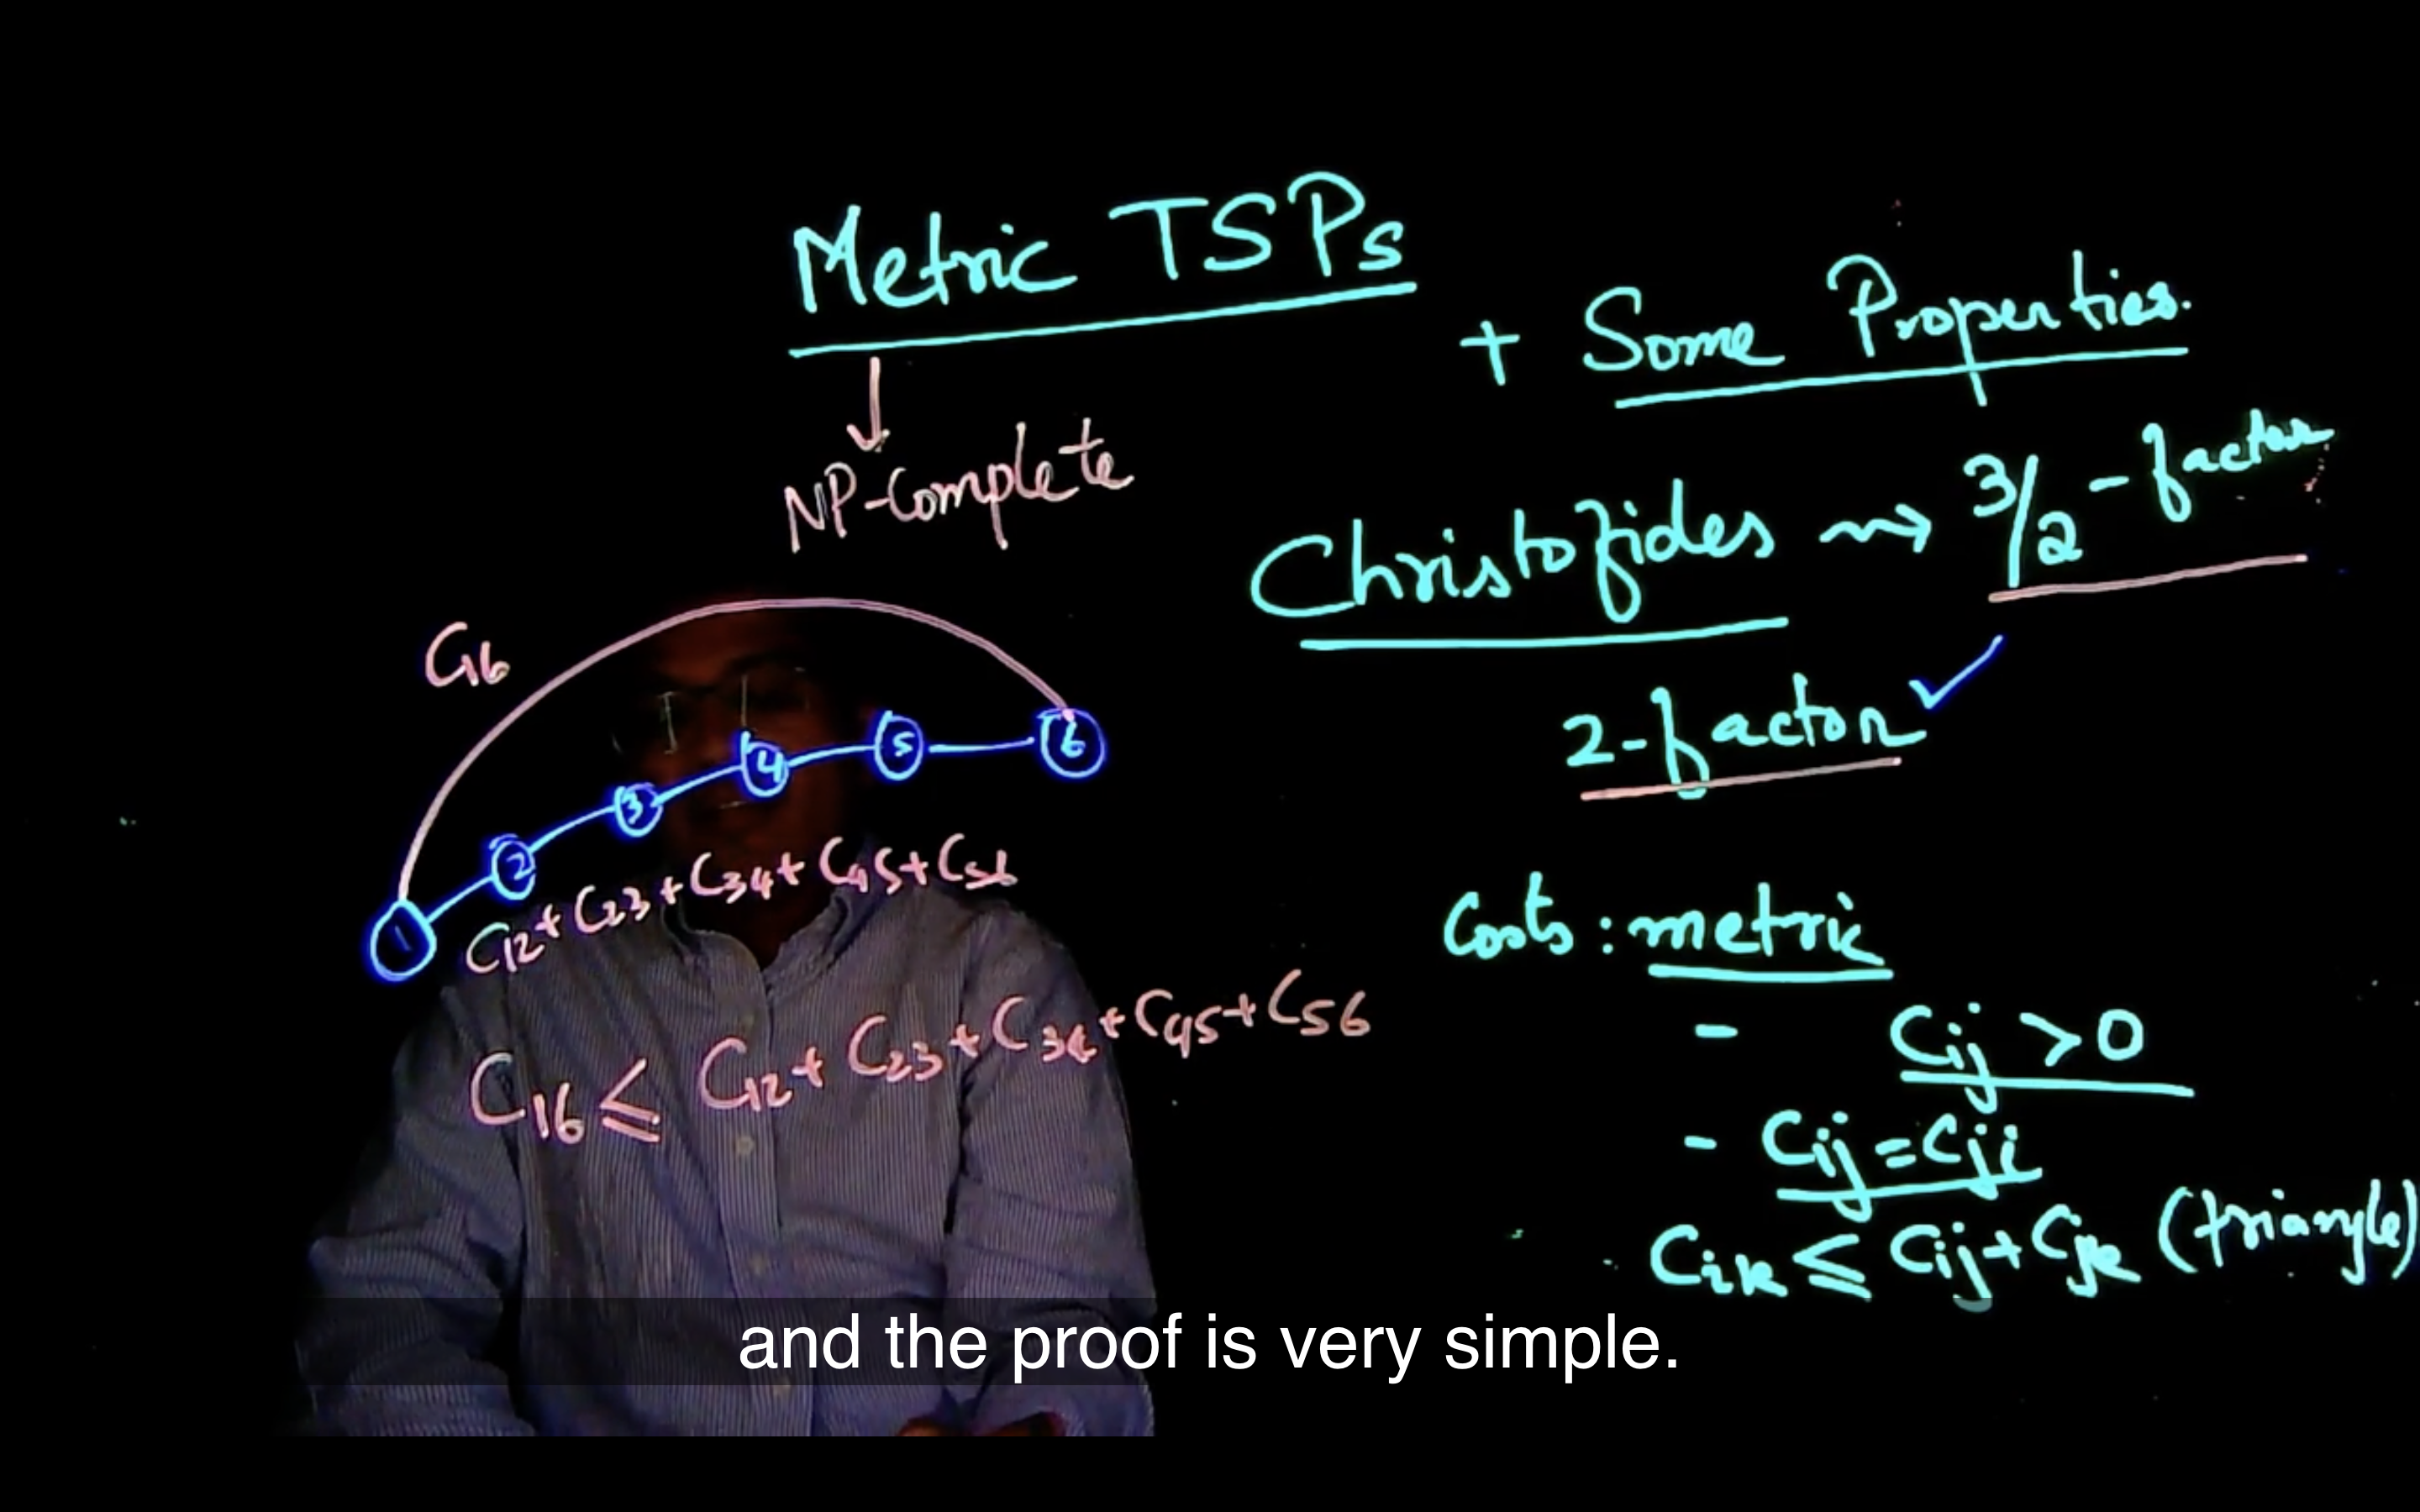 Metric TSPs
+ Some Properties.
NP-Complete
Christofides ⇝ 3/2-factor
2-factor ✓
C16
1 2 3 4 5 6
C12+C23+C34+C45+C56
C16 ≤ C12+C23+C34+C45+C56
Costs: metric
- Cij > 0
- Cij = Cji
Cik ≤ Cij + Cjk (triangle)
and the proof is very simple.